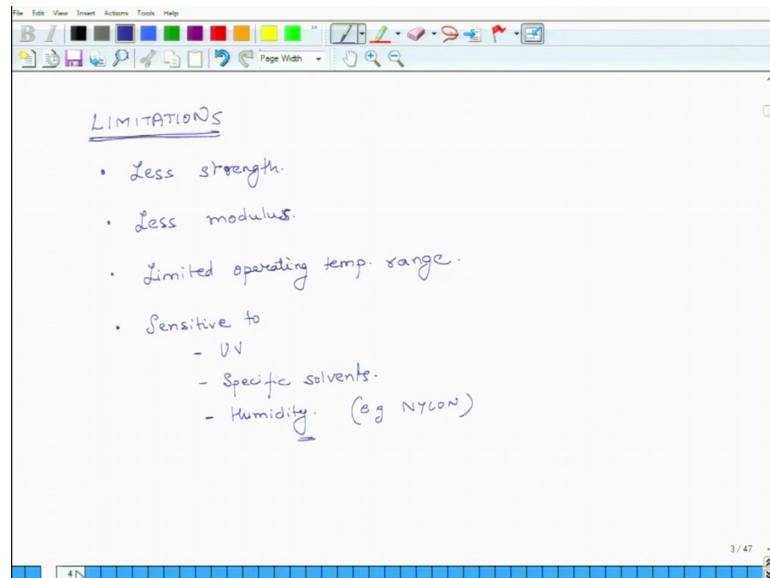 File Edit View Insert Actions Tools Help
B I
Page Width
LIMITATIONS
• Less strength.
• Less modulus.
• Limited operating temp. range.
• Sensitive to
- UV
- Specific solvents.
- Humidity. (eg NYLON)
3 / 47